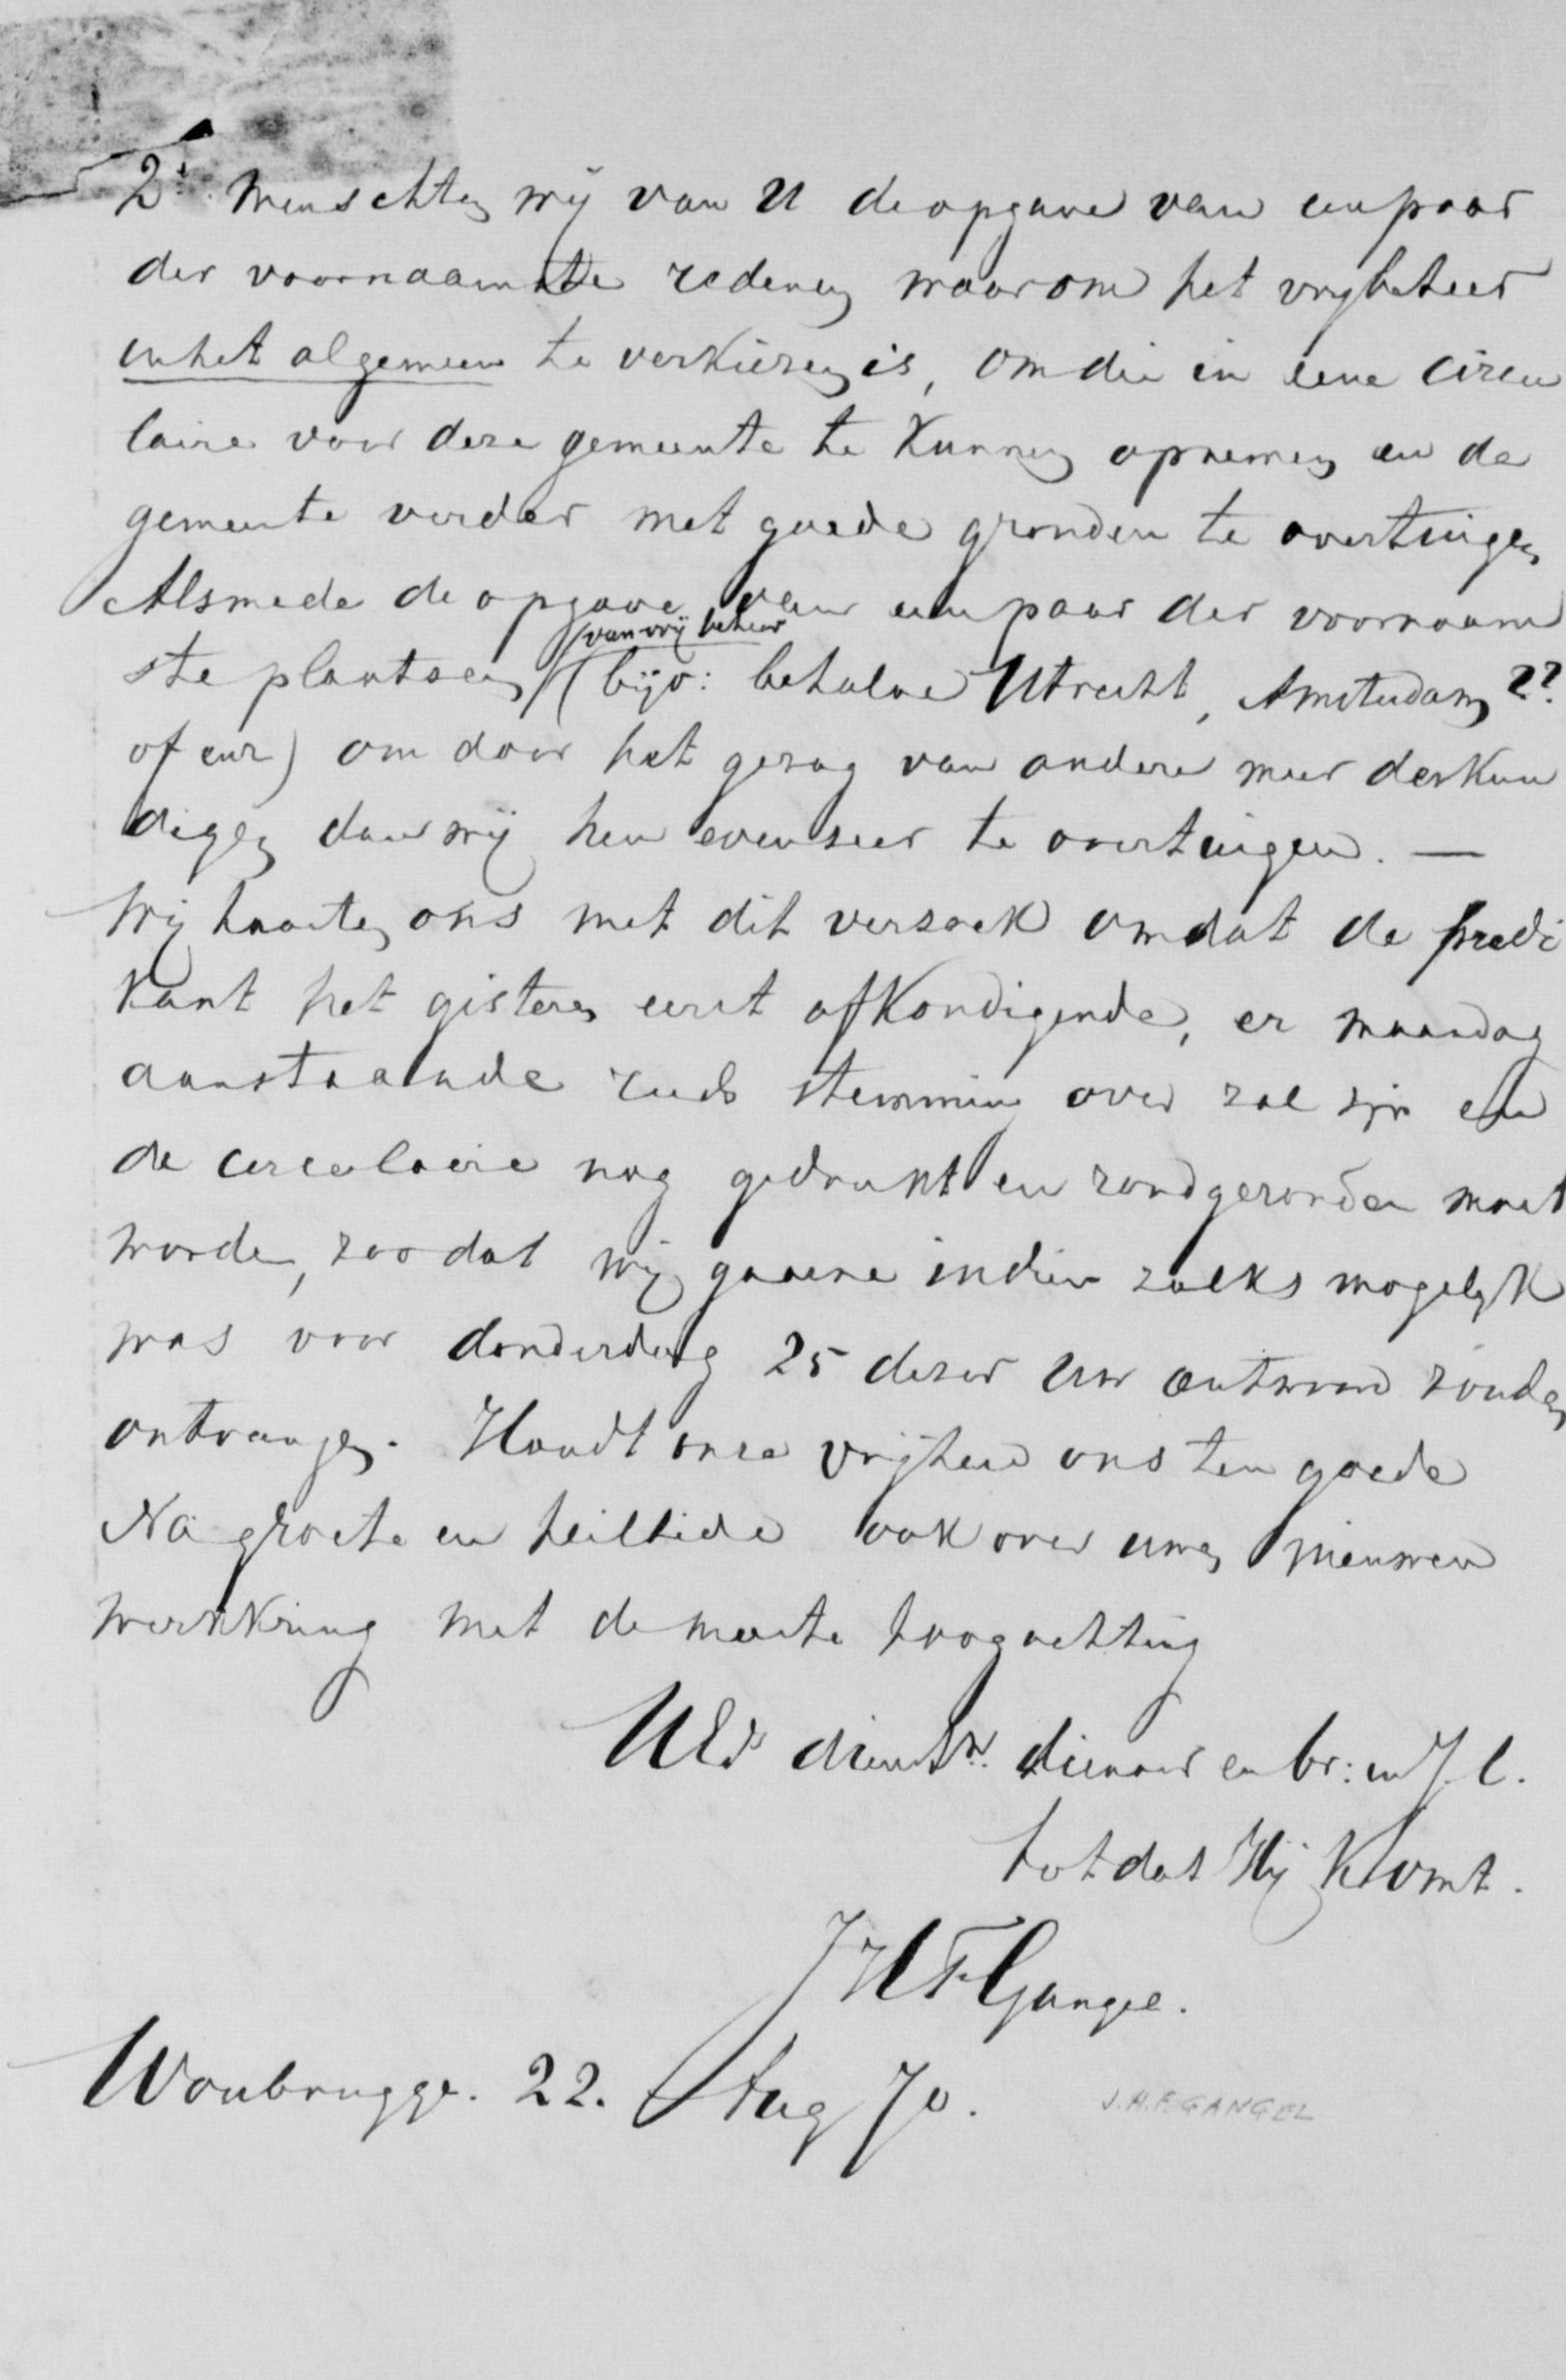 2e. Wenschten wij van U de opgave van een paar
der voornaamste redenen waarom het vrij beheer
in het algemeen te verkiezen is, om die in eene circu
laire voor deze gemeente te kunnen opnemen en de
gemeente verder met goede gronden te overtuigen
Alsmede de opgave van een paar der voornaam
van vrij beheer
ste plaatsen (bijv: behalve Utrecht, Amsterdam ??
of enz) om door het gezag van andere meer deskun
digen dan wij hen evenzeer te overtuigen. —
Wij haasten ons met dit verzoek omdat de predi
kant het gisteren eerst afkondigende, er maandag
aanstaande reeds stemming over zal zijn en
de circulaire nog gedrukt en rondgezonden moet
worden, zoo dat wij gaarne indien zulks mogelijk
was voor donderdag 25 dezer Uw antwoord zouden
ontvangen. Houdt onze vrijheid ons ten goede
Na groete en heilbede ook over uwen nieuwen
werkkring met de meeste hoogachting
UEds dienstw. dienaar en br: in J. C.
totdat Hij komt.
JHF Gangel.
Woubrugge. 22. Aug 70.
J.H.F. GANGEL